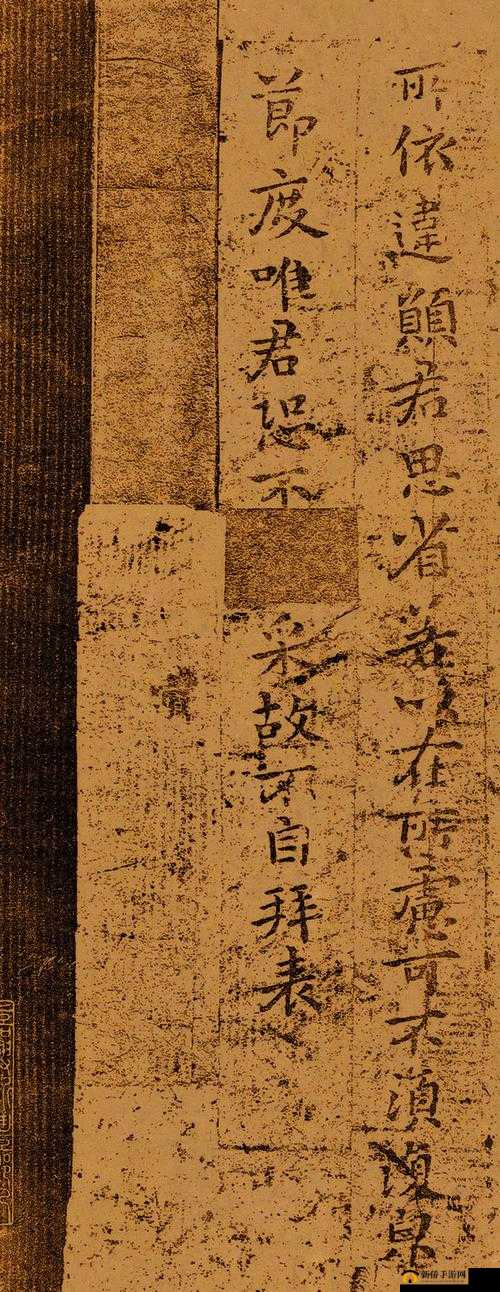 所依違願君思省若以在所慮可不須復皃
節度唯君恐不
采故不自拜表
新侨手游网